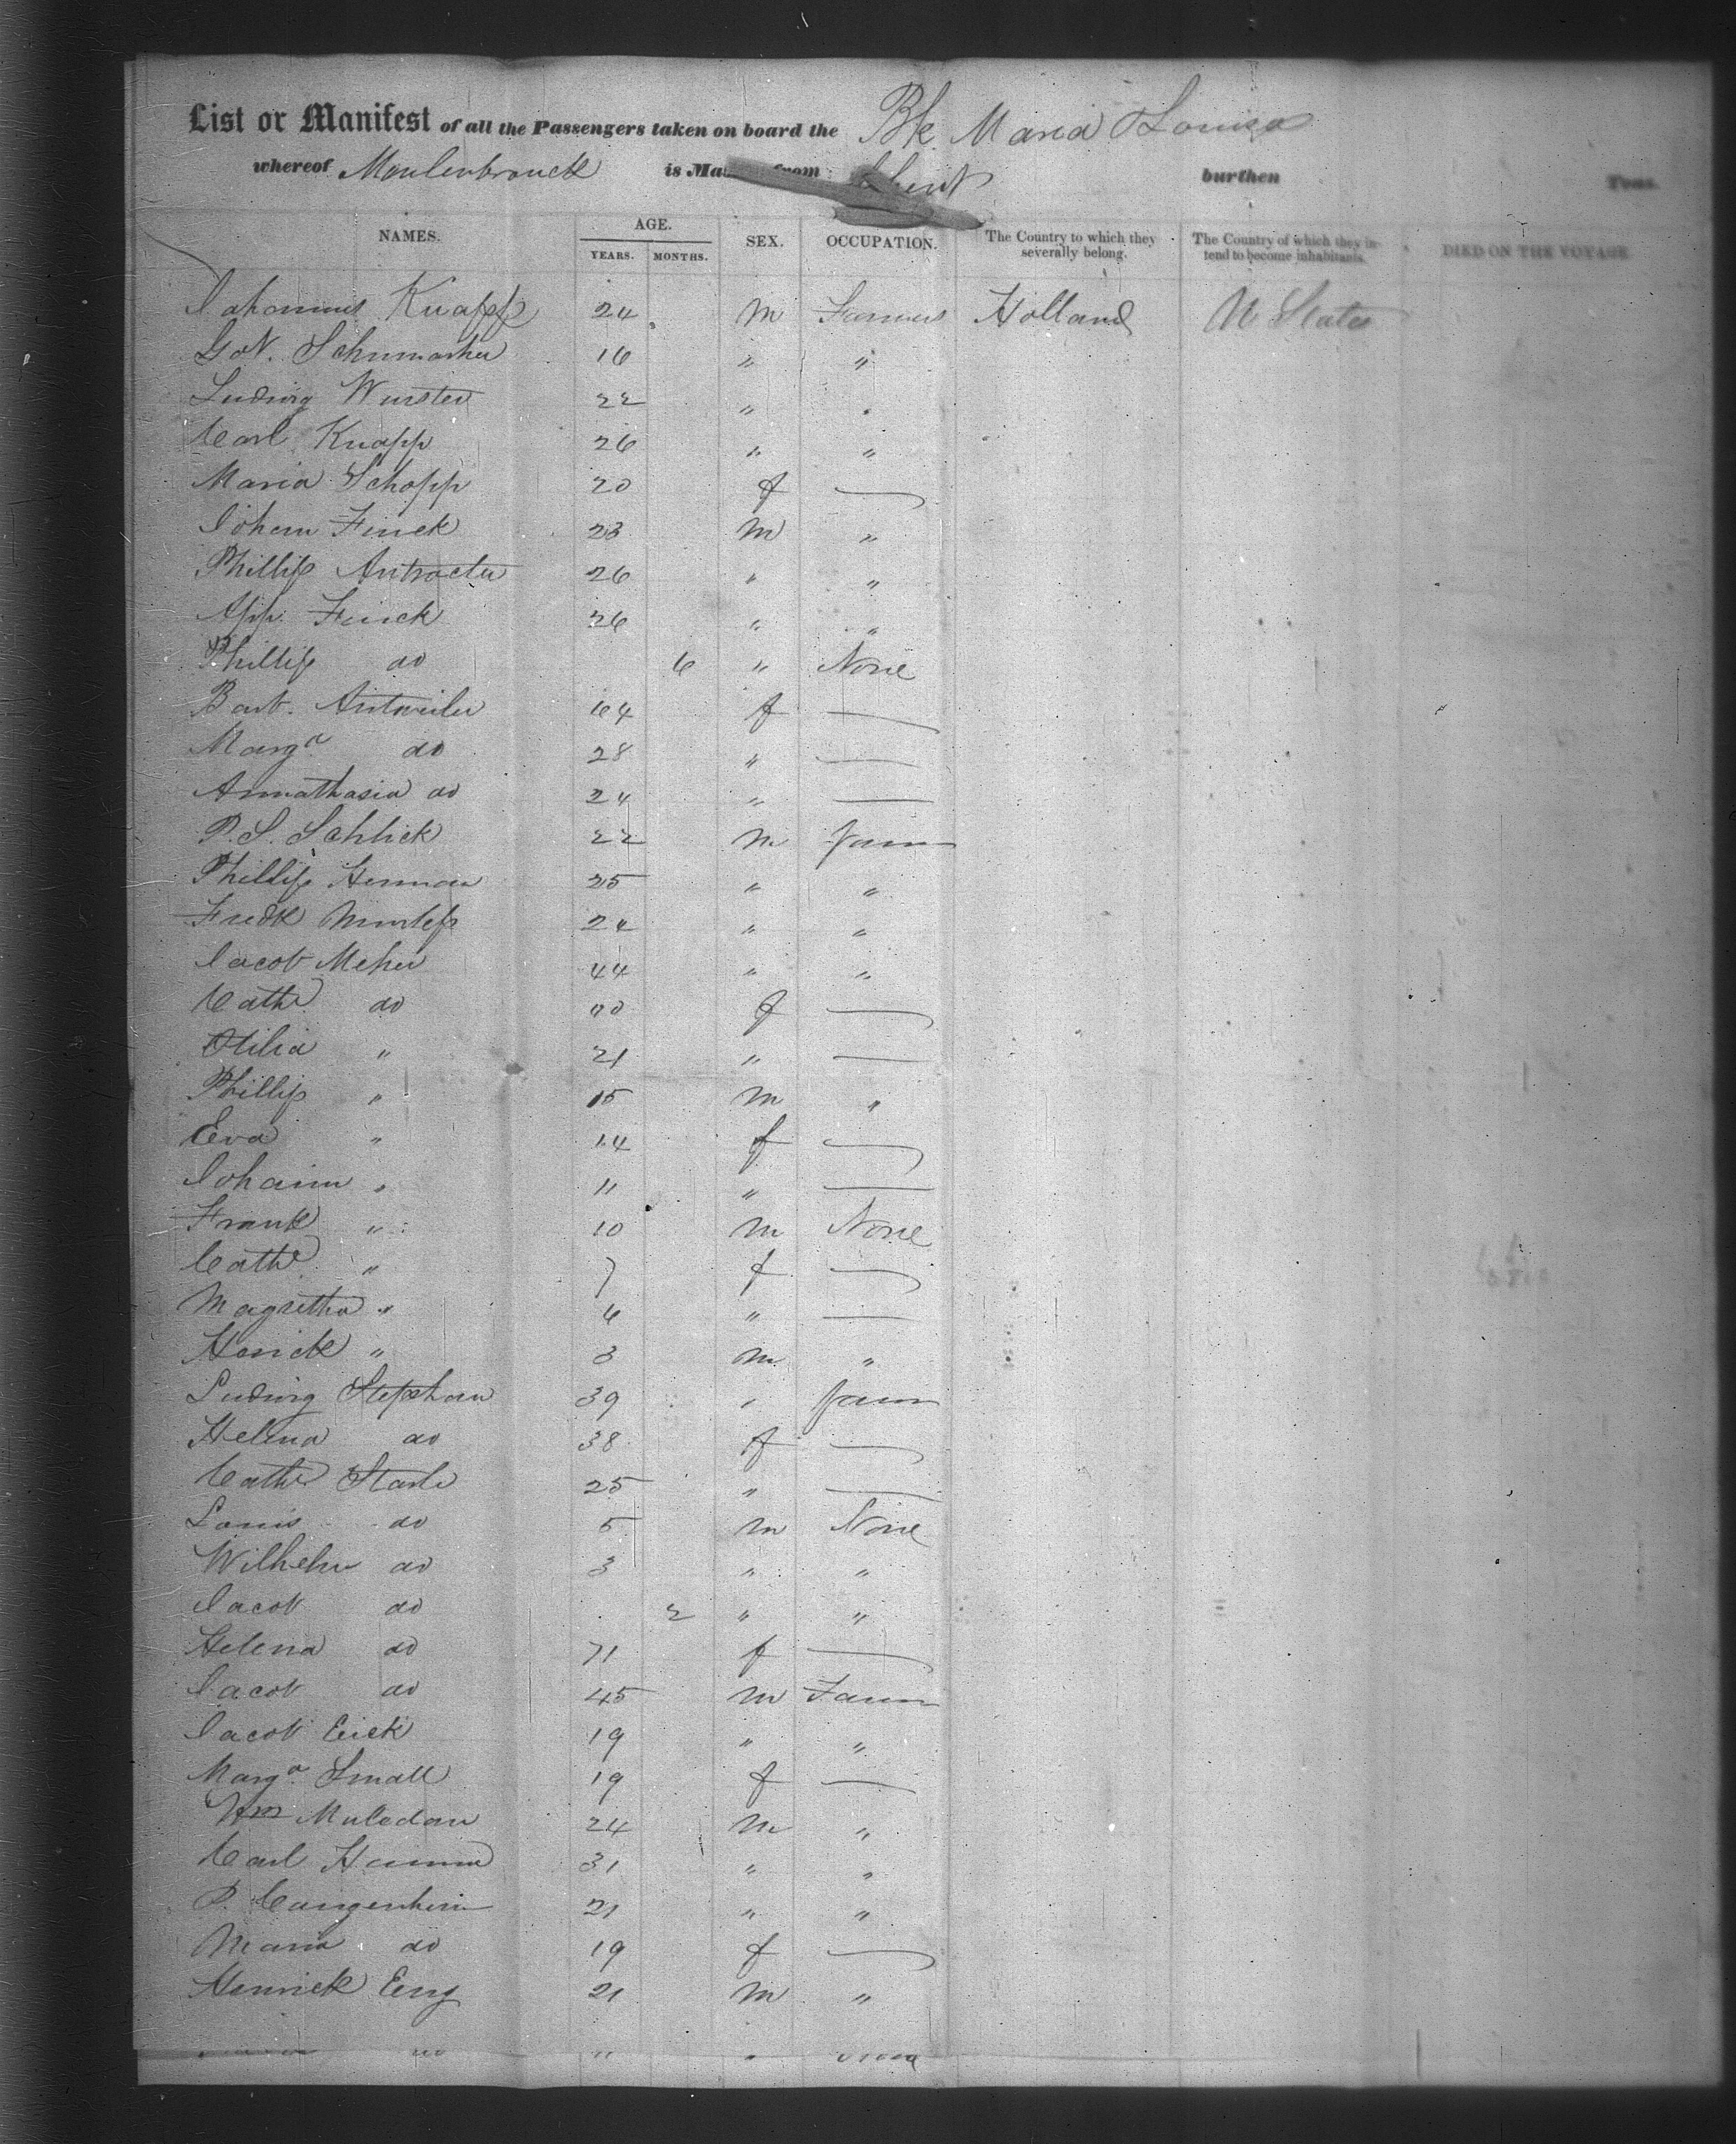 List or Manifest of all the Passengers taken on board the Bk Maria Louisa
whereof Meulenbrouck is Mas from Ghent burthen Tons.
NAMES. AGE. SEX. OCCUPATION. The Country to which they severally belong. The Country of which they intend to become inhabitants. DIED ON THE VOYAGE
YEARS. MONTHS.
Johannes Knapp 24 M Farmer Holland U States
Got. Schumacher 16 " "
Ludwig Wurster 22 " "
Carl Knapp 26 " "
Maria Schopp 20 f —
Johann Finck 23 M "
Phillip 26 " "
App. Finck 26 " "
Phillip do 6 " None
Barb. Antweiler 64 f —
Marga do 28 " —
Annathasia do 24 " —
P. S. Schlick 22 M farm
Phillip Herman 25 " "
Fredk 24 " "
Jacob Meher 44 " "
Cathe do 40 f —
Otilia " 21 " —
Phillip " 15 M "
Eva " 14 f —
Johann " 11 " —
Frank " 10 M None
Cathe " 7 f —
Magretha " 6 " —
Henrick " 3 M "
Ludwig Stephan 39 " farm
Helena do 38 f —
Cathe 25 " —
Louis do 5 M None
Wilhelm do 3 " "
Jacob do 2 " "
Helena do 71 f —
Jacob do 45 M Farm
Jacob Eick 19 " "
Marga Small 19 f —
Wm 24 M "
Carl 31 " "
P. 21 " "
Maria do 19 f —
Henrick Eng 21 M "